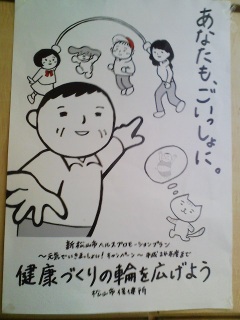 あなたも、ごいっしょに。
新松山市ヘルスプロモーションプラン
～元気でいきましょい！キャンペーン～平成24年度まで
健康づくりの輪を広げよう
松山市保健所